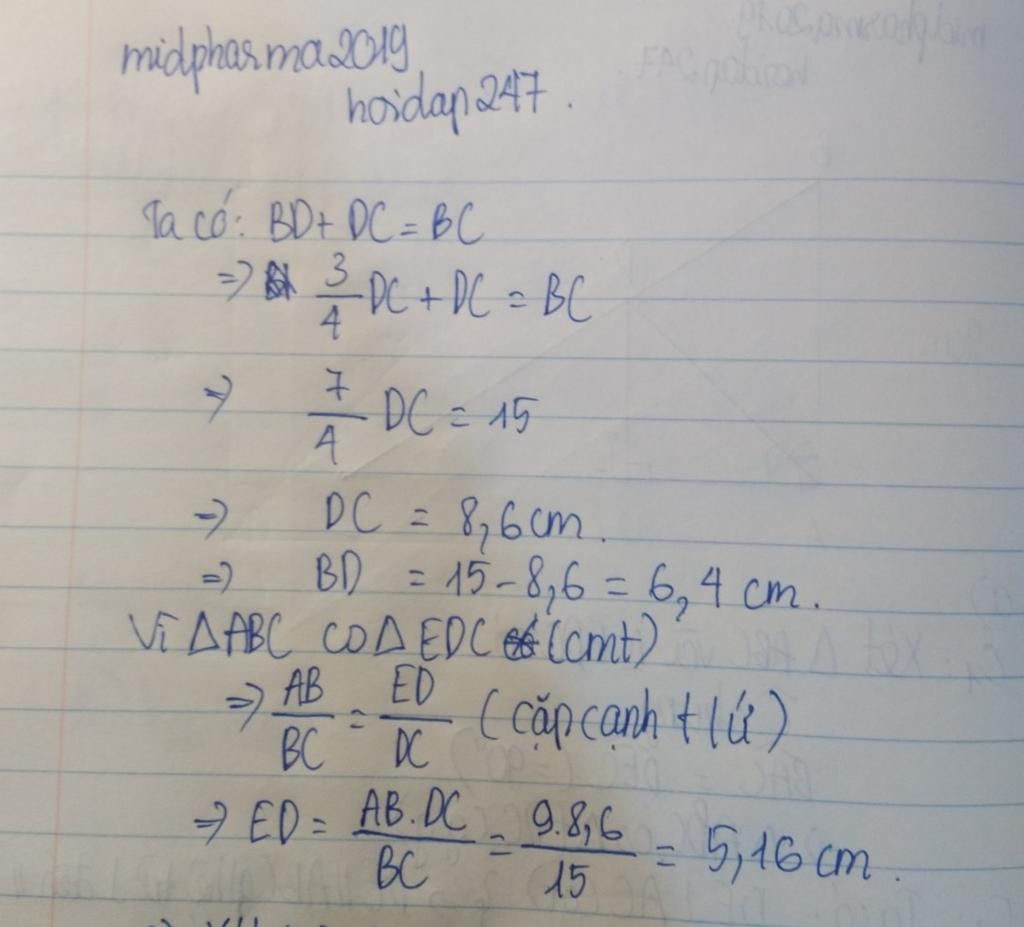 midpharma2019
hoidap247.
Ta có: BD + DC = BC
=> 3/4 DC + DC = BC
=> 7/4 DC = 15
=> DC = 8,6 cm.
=> BD = 15 - 8,6 = 6,4 cm.
Vì △ABC ∽ △EDC (cmt)
=> AB/BC = ED/DC (cặp cạnh t/ứ)
=> ED = AB.DC/BC = 9.8,6/15 = 5,16 cm.